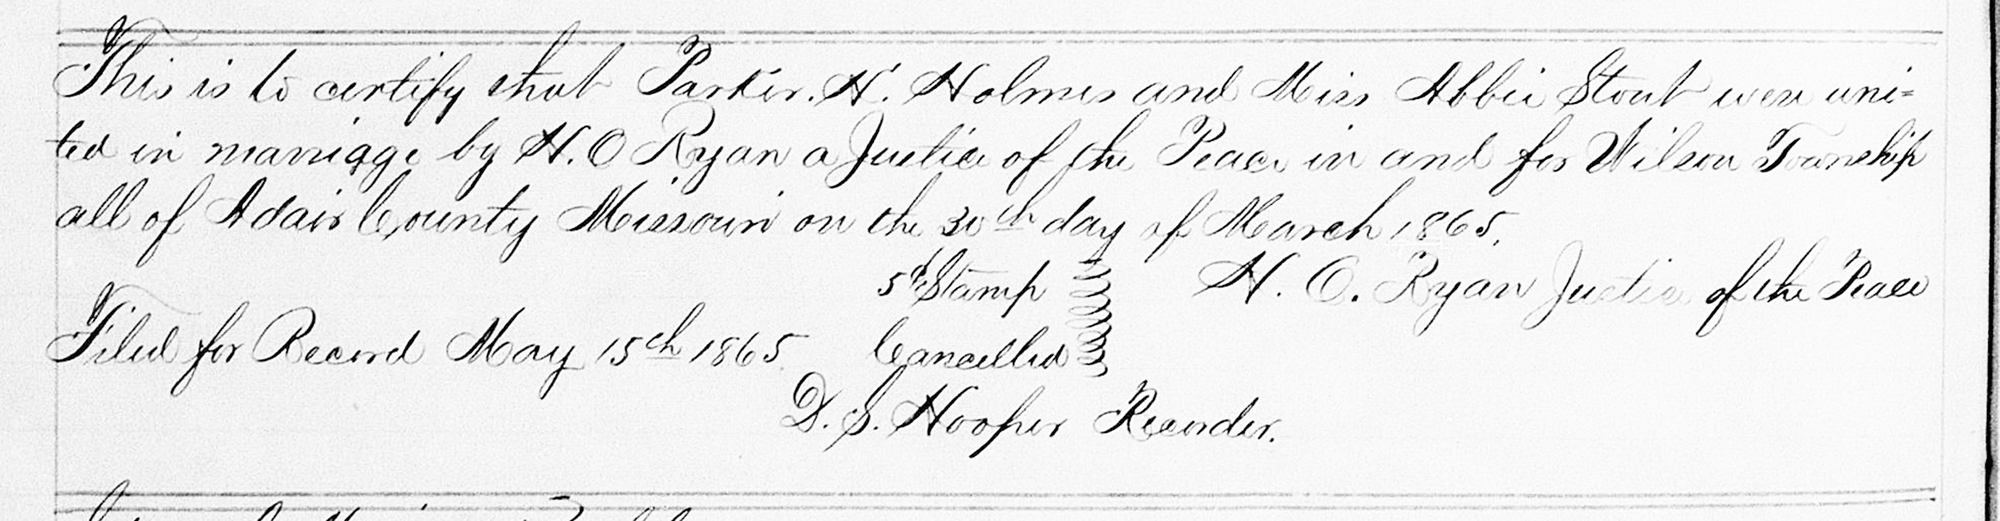 This is to certify that Parker. H. Holmes and Miss Abbie Stout were uni=
ted in marriage by H. O Ryan a Justice of the Peace in and for Wilson Township
all of Adair County Missouri on the 30th day of March 1865.
5ct Stamp H. O. Ryan Justice of the Peace
Filed for Record May 15th 1865 Cancelled
D. S. Hooper Recorder.